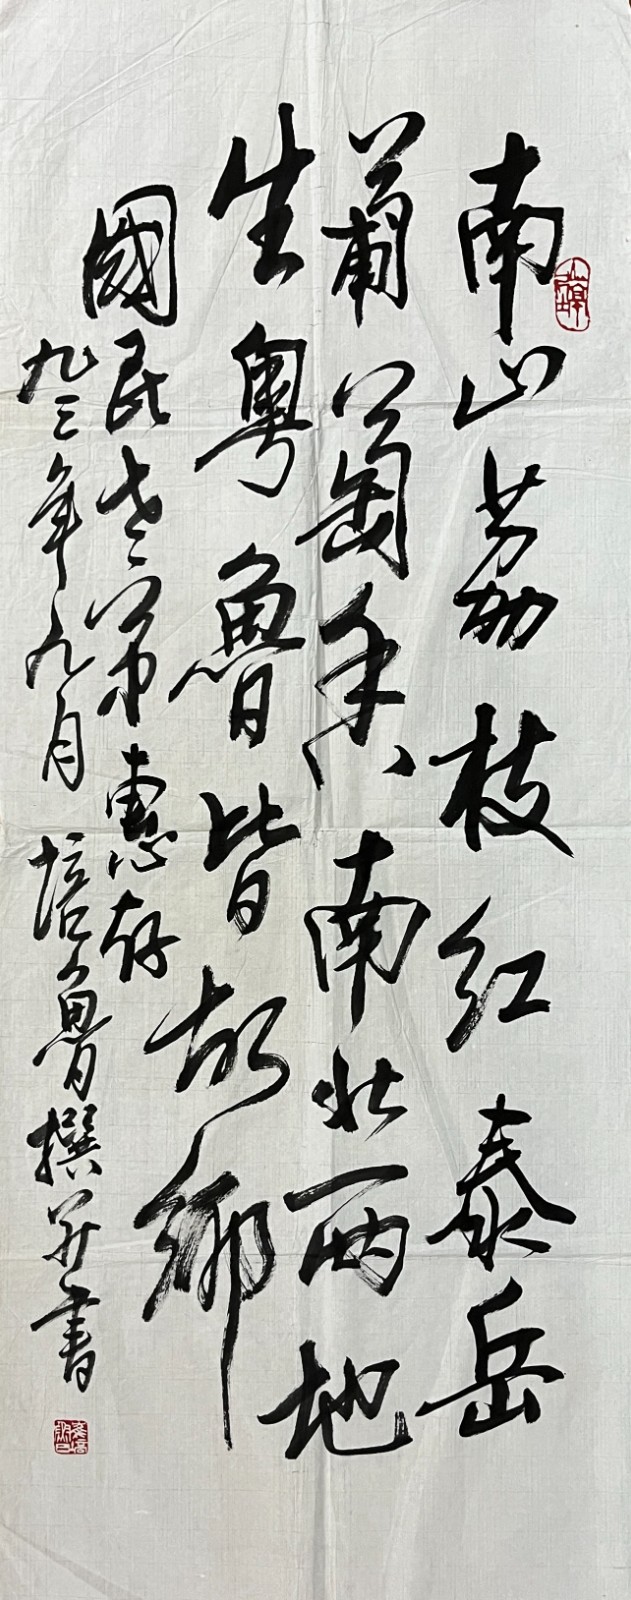 南山荔枝红泰岳
葡萄香南北两地
生粤鲁皆故乡
國民老弟惠存
九三年九月培鲁撰并书